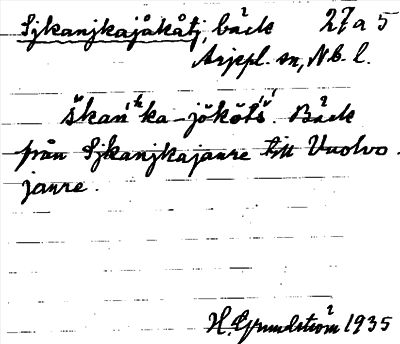 Sjkanjkajåkåtj, bäck 27a5
Arjepl. sn, N.b. l.
škańʹka-jŏkŏtś. Bäck
från Sjkanjkajaure till Vuolvo-
jaure.
H. Grundström 1935